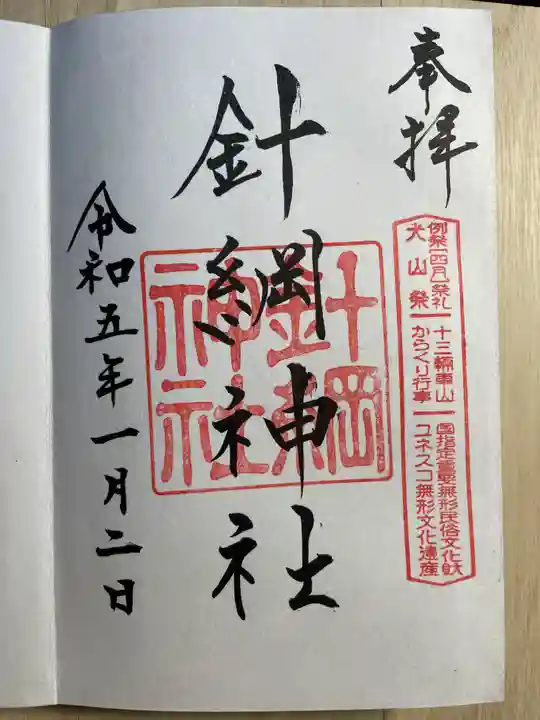 奉拝
例祭(四月)祭礼
犬山祭
十三輛車山
からくり行事
国指定重要無形民俗文化財
ユネスコ無形文化遺産
針綱神社
針綱
神社
令和五年一月二日